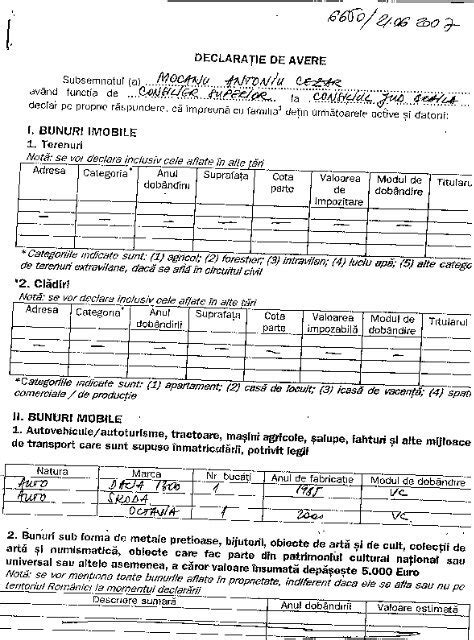 6650/21.06 2007
DECLARAȚIE DE AVERE
Subsemnatul (a) MOCANU ANTONIU CEZAR
având funcția de CONSILIER SUPERIOR la CONSILIUL JUD BRAILA
declar pe proprie răspundere, că împreună cu familia¹ dețin următoarele active și datorii:
I. BUNURI IMOBILE
1. Terenuri
Notă: se vor declara inclusiv cele aflate în alte țări
Adresa Categoria* Anul dobândirii Suprafața Cota parte Valoarea de impozitare Modul de dobândire Titularul
— — — — — — —
*Categoriile indicate sunt: (1) agricol; (2) forestier; (3) intravilan; (4) luciu apă; (5) alte catego
de terenuri extravilane, dacă se află în circuitul civil
*2. Clădiri
Notă: se vor declara inclusiv cele aflate în alte țări
Adresa Categoria* Anul dobândirii Suprafața Cota parte Valoarea impozabilă Modul de dobândire Titularul
— — — — — — —
*Categoriile indicate sunt: (1) apartament; (2) casă de locuit; (3) casă de vacență; (4) spați
comerciale / de producție
II. BUNURI MOBILE
1. Autovehicule/autoturisme, tractoare, mașini agricole, șalupe, iahturi și alte mijloace
de transport care sunt supuse înmatriculării, potrivit legii
Natura Marca Nr bucăți Anul de fabricație Modul de dobândire
AUTO DACIA 1300 1 1985 VC
AUTO SKODA
OCTAVIA 1 2000 VC
2. Bunuri sub formă de metale prețioase, bijuterii, obiecte de artă și de cult, colecții de
artă și numismatică, obiecte care fac parte din patrimoniul cultural național sau
universal sau altele asemenea, a căror valoare însumată depășește 5.000 Euro
Notă: se vor menționa toate bunurile aflate în proprietate, indiferent dacă ele se află sau nu pe
teritoriul României la momentul declarării
Descriere sumară Anul dobândirii Valoare estimată